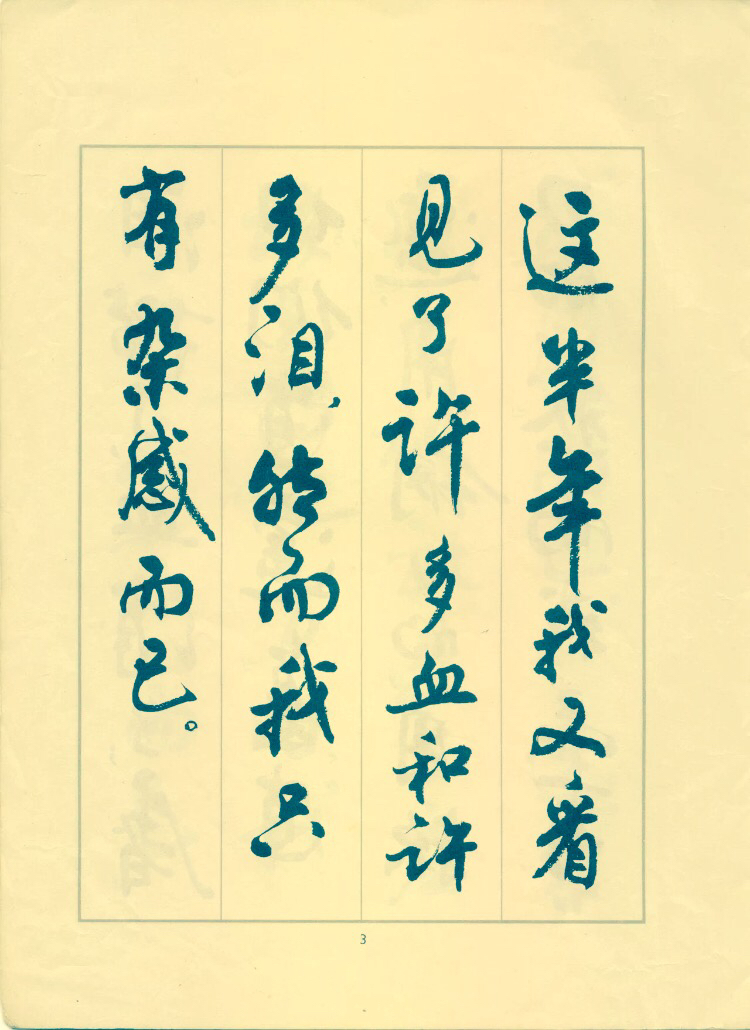 这半年我又看
见了许多血和许
多泪，然而我只
有杂感而已。
3